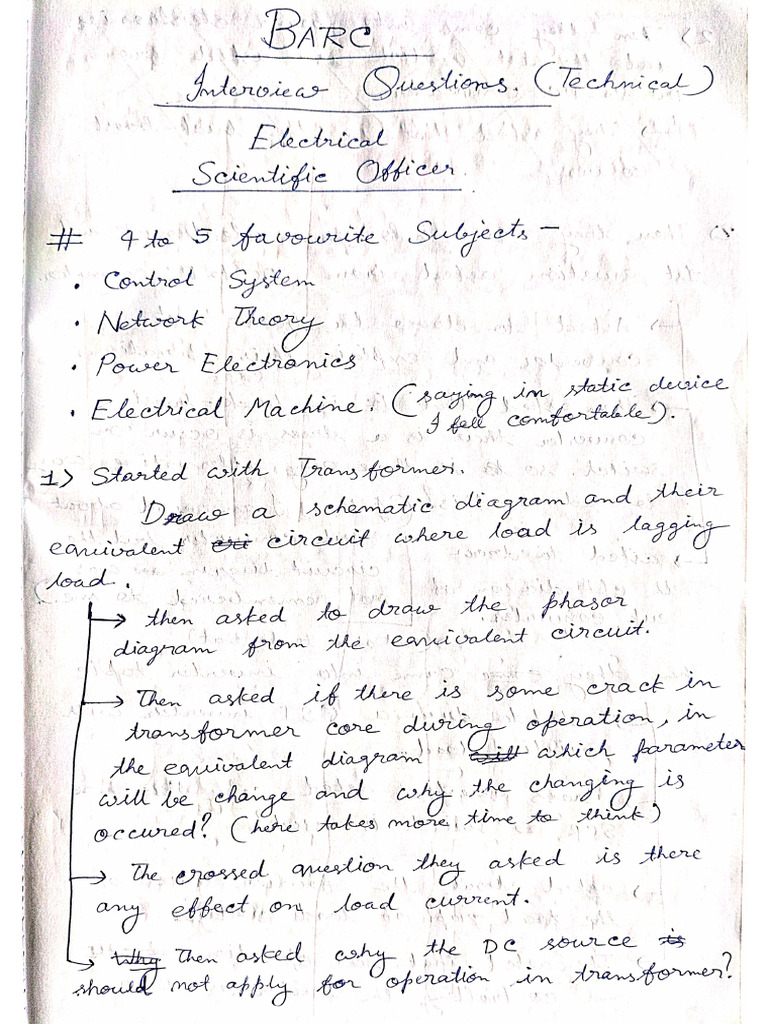 BARC
Interview Questions. (Technical)
Electrical
Scientific Officer.
# 4 to 5 favourite Subjects -
• Control System
• Network Theory
• Power Electronics
• Electrical Machine. (saying, in static device
I fell comfortable).
1) Started with Transformer.
Draw a schematic diagram and their
equivalent cri circuit where load is lagging
load.
→ then asked to draw the phasor
diagram from the equivalent circuit.
→ Then asked if there is some crack in
transformer core during operation, in
the equivalent diagram will which parameter
will be change and why the changing is
occured? (here takes more time to think)
→ The crossed question they asked is there
any effect on load current.
→ Why Then asked why, the DC source is
should not apply for operation in transformer?